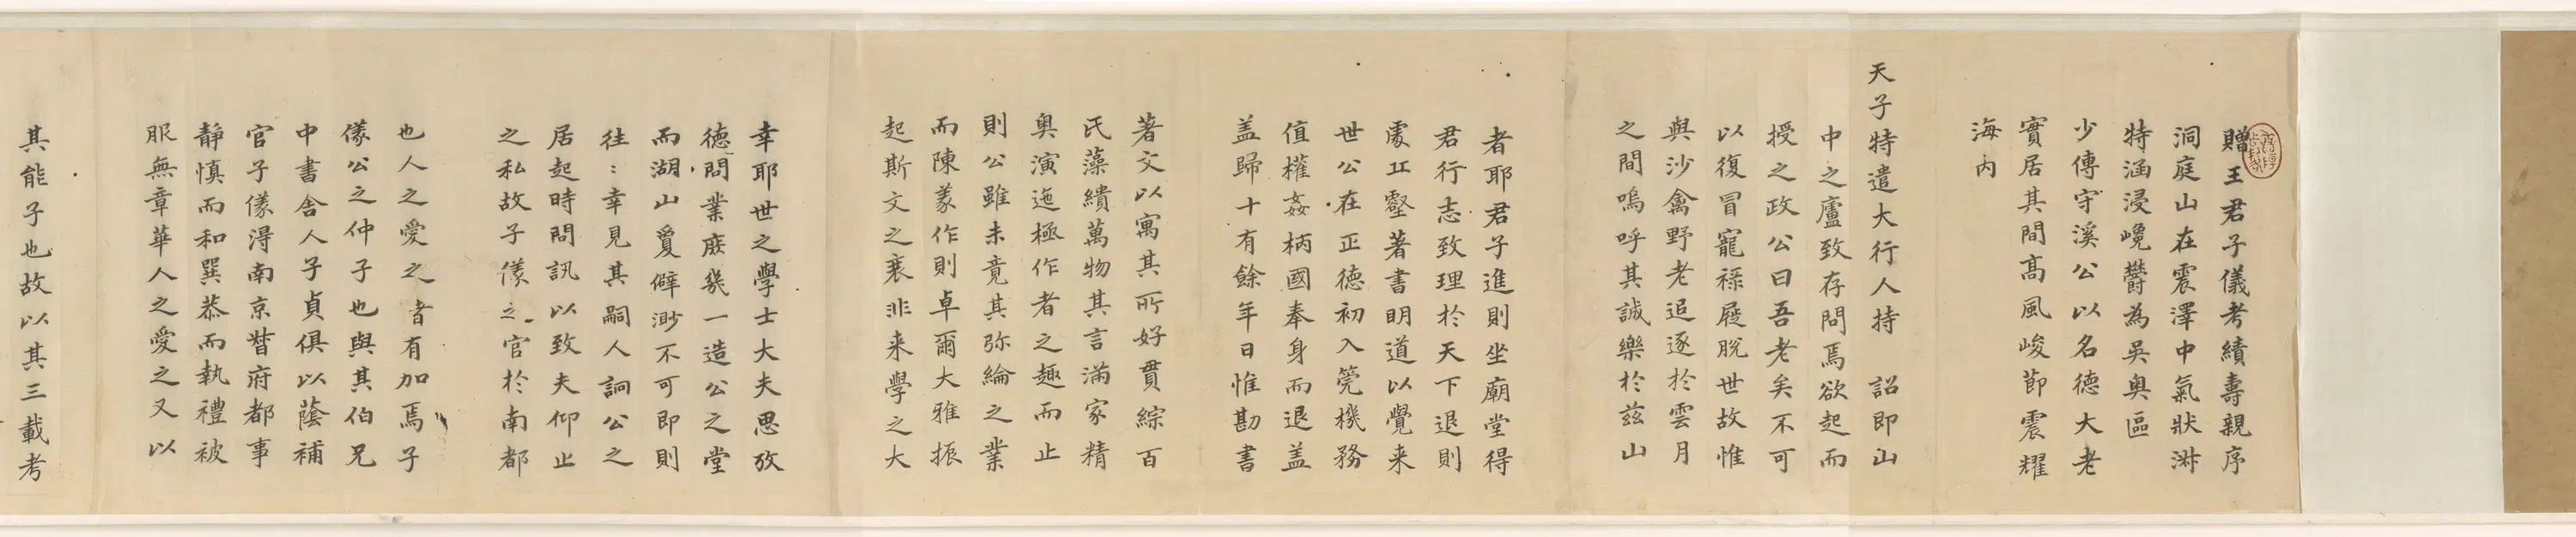 贈王君子儀考績壽親序
洞庭山在震澤中氣狀渊
特涵浸巉欝為吳奧區
少傅守溪公以名德大老
實居其間高風峻節震耀
海内
天子特遣大行人持 詔即山
中之廬致存問焉欲起而
授之政公曰吾老矣不可
以復冒寵祿屣脫世故惟
與沙禽野老追逐於雲月
之間嗚呼其誠樂於茲山
者耶君子進則坐廟堂得
君行志致理於天下退則
處丘壑著書明道以覺来
世公在正德初入筦機務
值權姦柄國奉身而退盖
盖歸十有餘年日惟勘書
著文以寓其所好貫綜百
氏藻繢萬物其言滿家精
奥演迤極作者之趣而止
則公雖未竟其弥綸之業
而陳羲作則卓爾大雅振
起斯文之衰非来學之大
幸耶世之學士大夫思攷
德問業庻幾一造公之堂
而湖山敻僻渺不可即則
往:幸見其嗣人詗公之
居起時問訊以致夫仰止
之私故子儀之官於南都
也人之愛之者有加焉子
儀公之仲子也與其伯兄
中書舍人子貞俱以蔭補
官子儀淂南京督府都事
靜慎而和巽恭而執禮被
服無章華人之愛之又以
其能子也故以其三載考